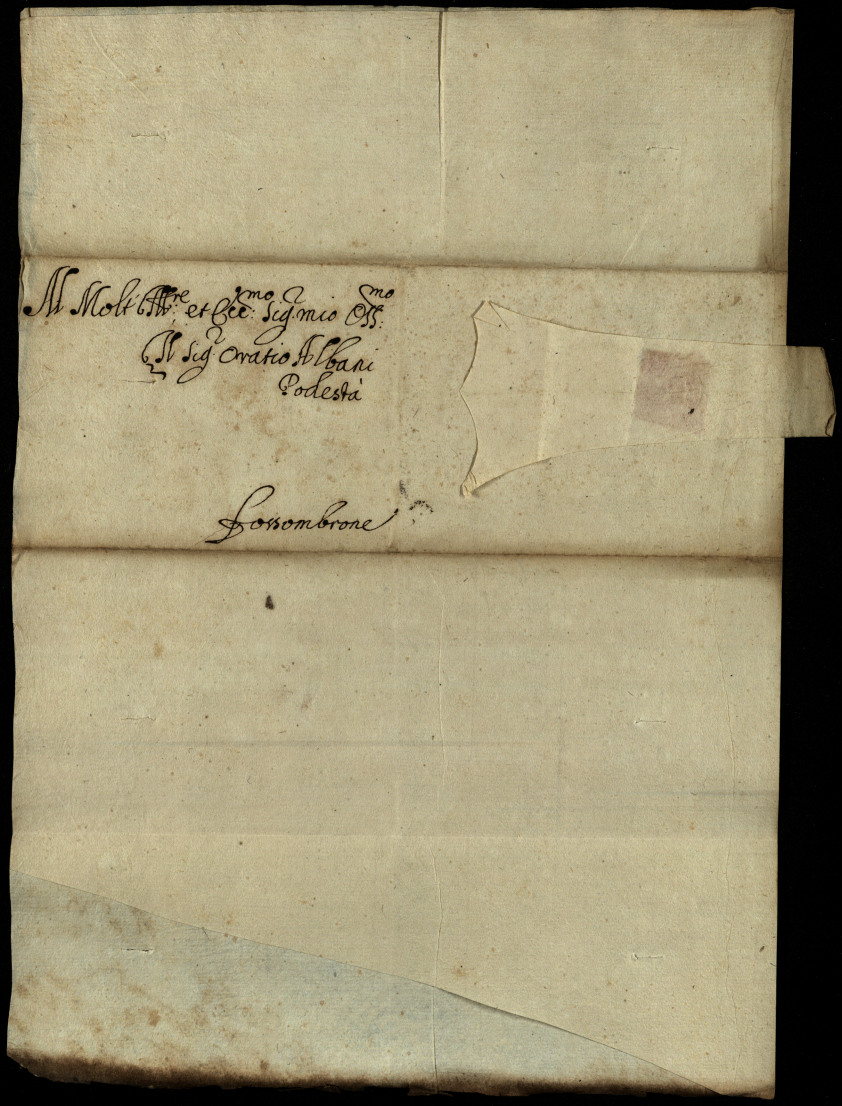 Al Molt' Ill:re et Ecc:mo Sig.r mio Oss:mo
Il Sig.r Oratio Albani
Podestà
Fossombrone